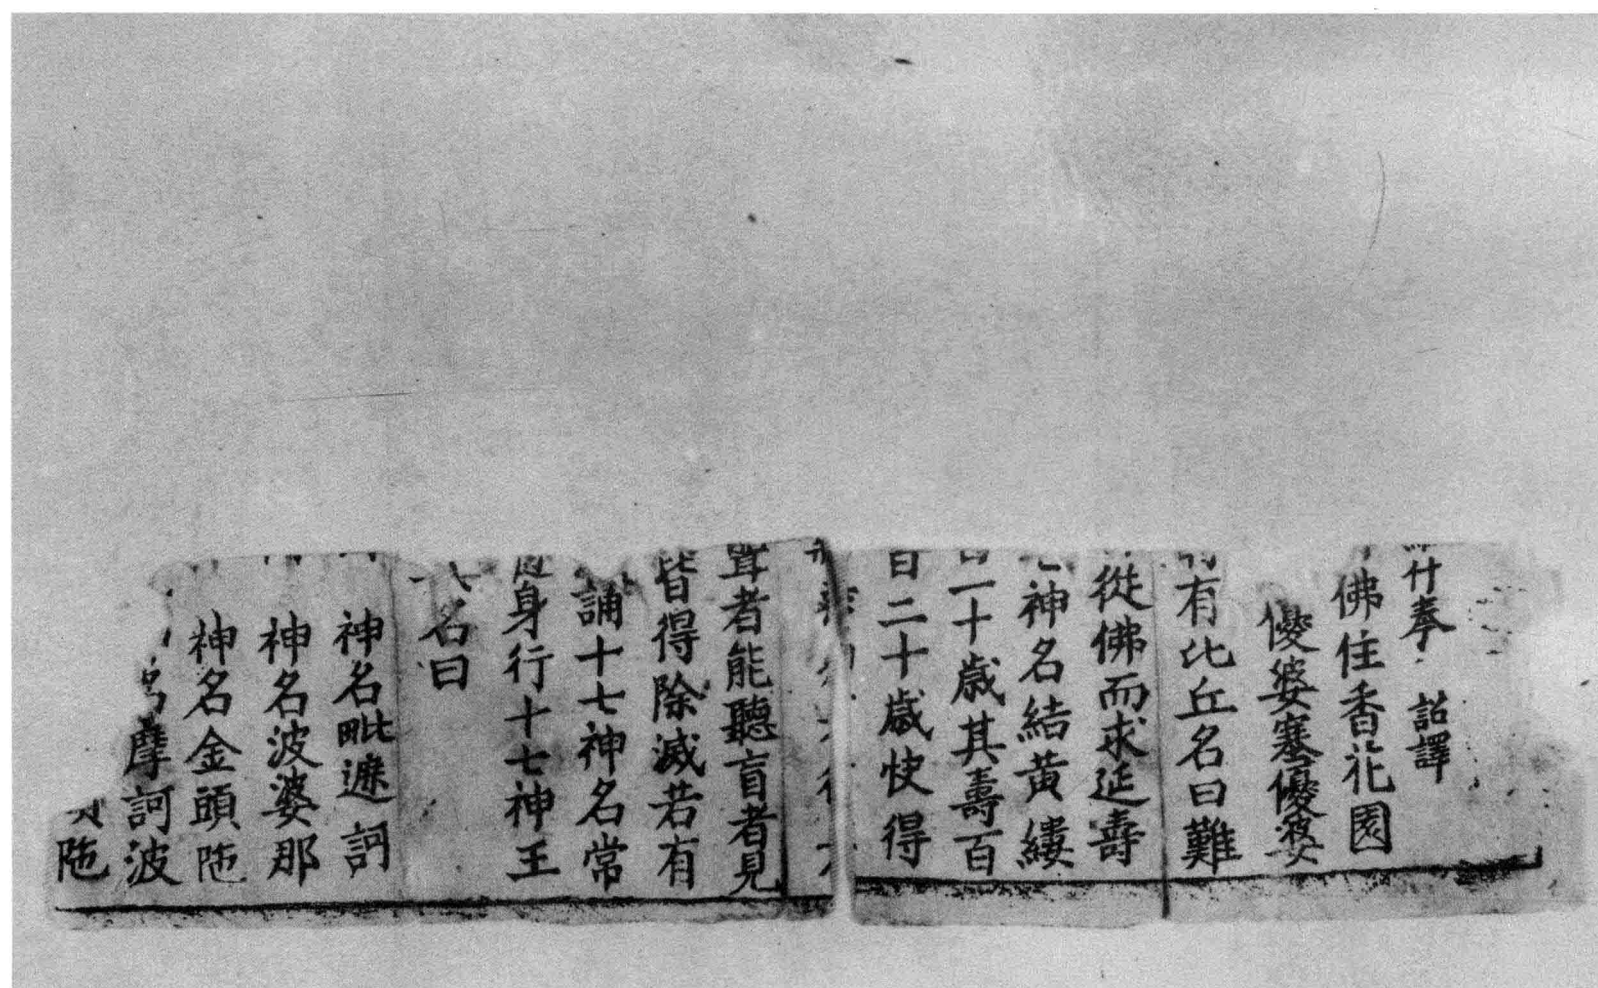 什奉 詔譯
佛住香花園
優婆塞優婆
有比丘名曰難
從佛而求延壽
神名結黃縷
二十歲其壽百
百二十歲快得
聾者能聽盲者見
皆得除滅若有
誦十七神名常
身行十七神王
名曰
神名毗遮訶
神名波婆那
神名金頭陁
名摩訶波
陁